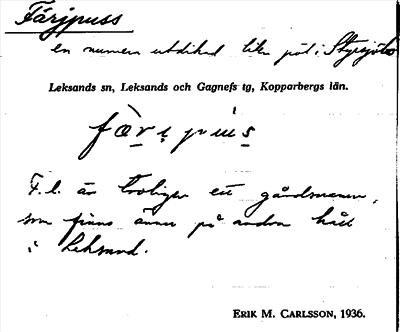 Färjpuss
en numera utdikad liten pöl i Styrsjöbo
Leksands sn, Leksands och Gagnefs tg, Kopparbergs län.
F.l. är troligen ett gårdsnamn,
som finns ännu på andra håll
i Leksand.
ERIK M. CARLSSON, 1936.